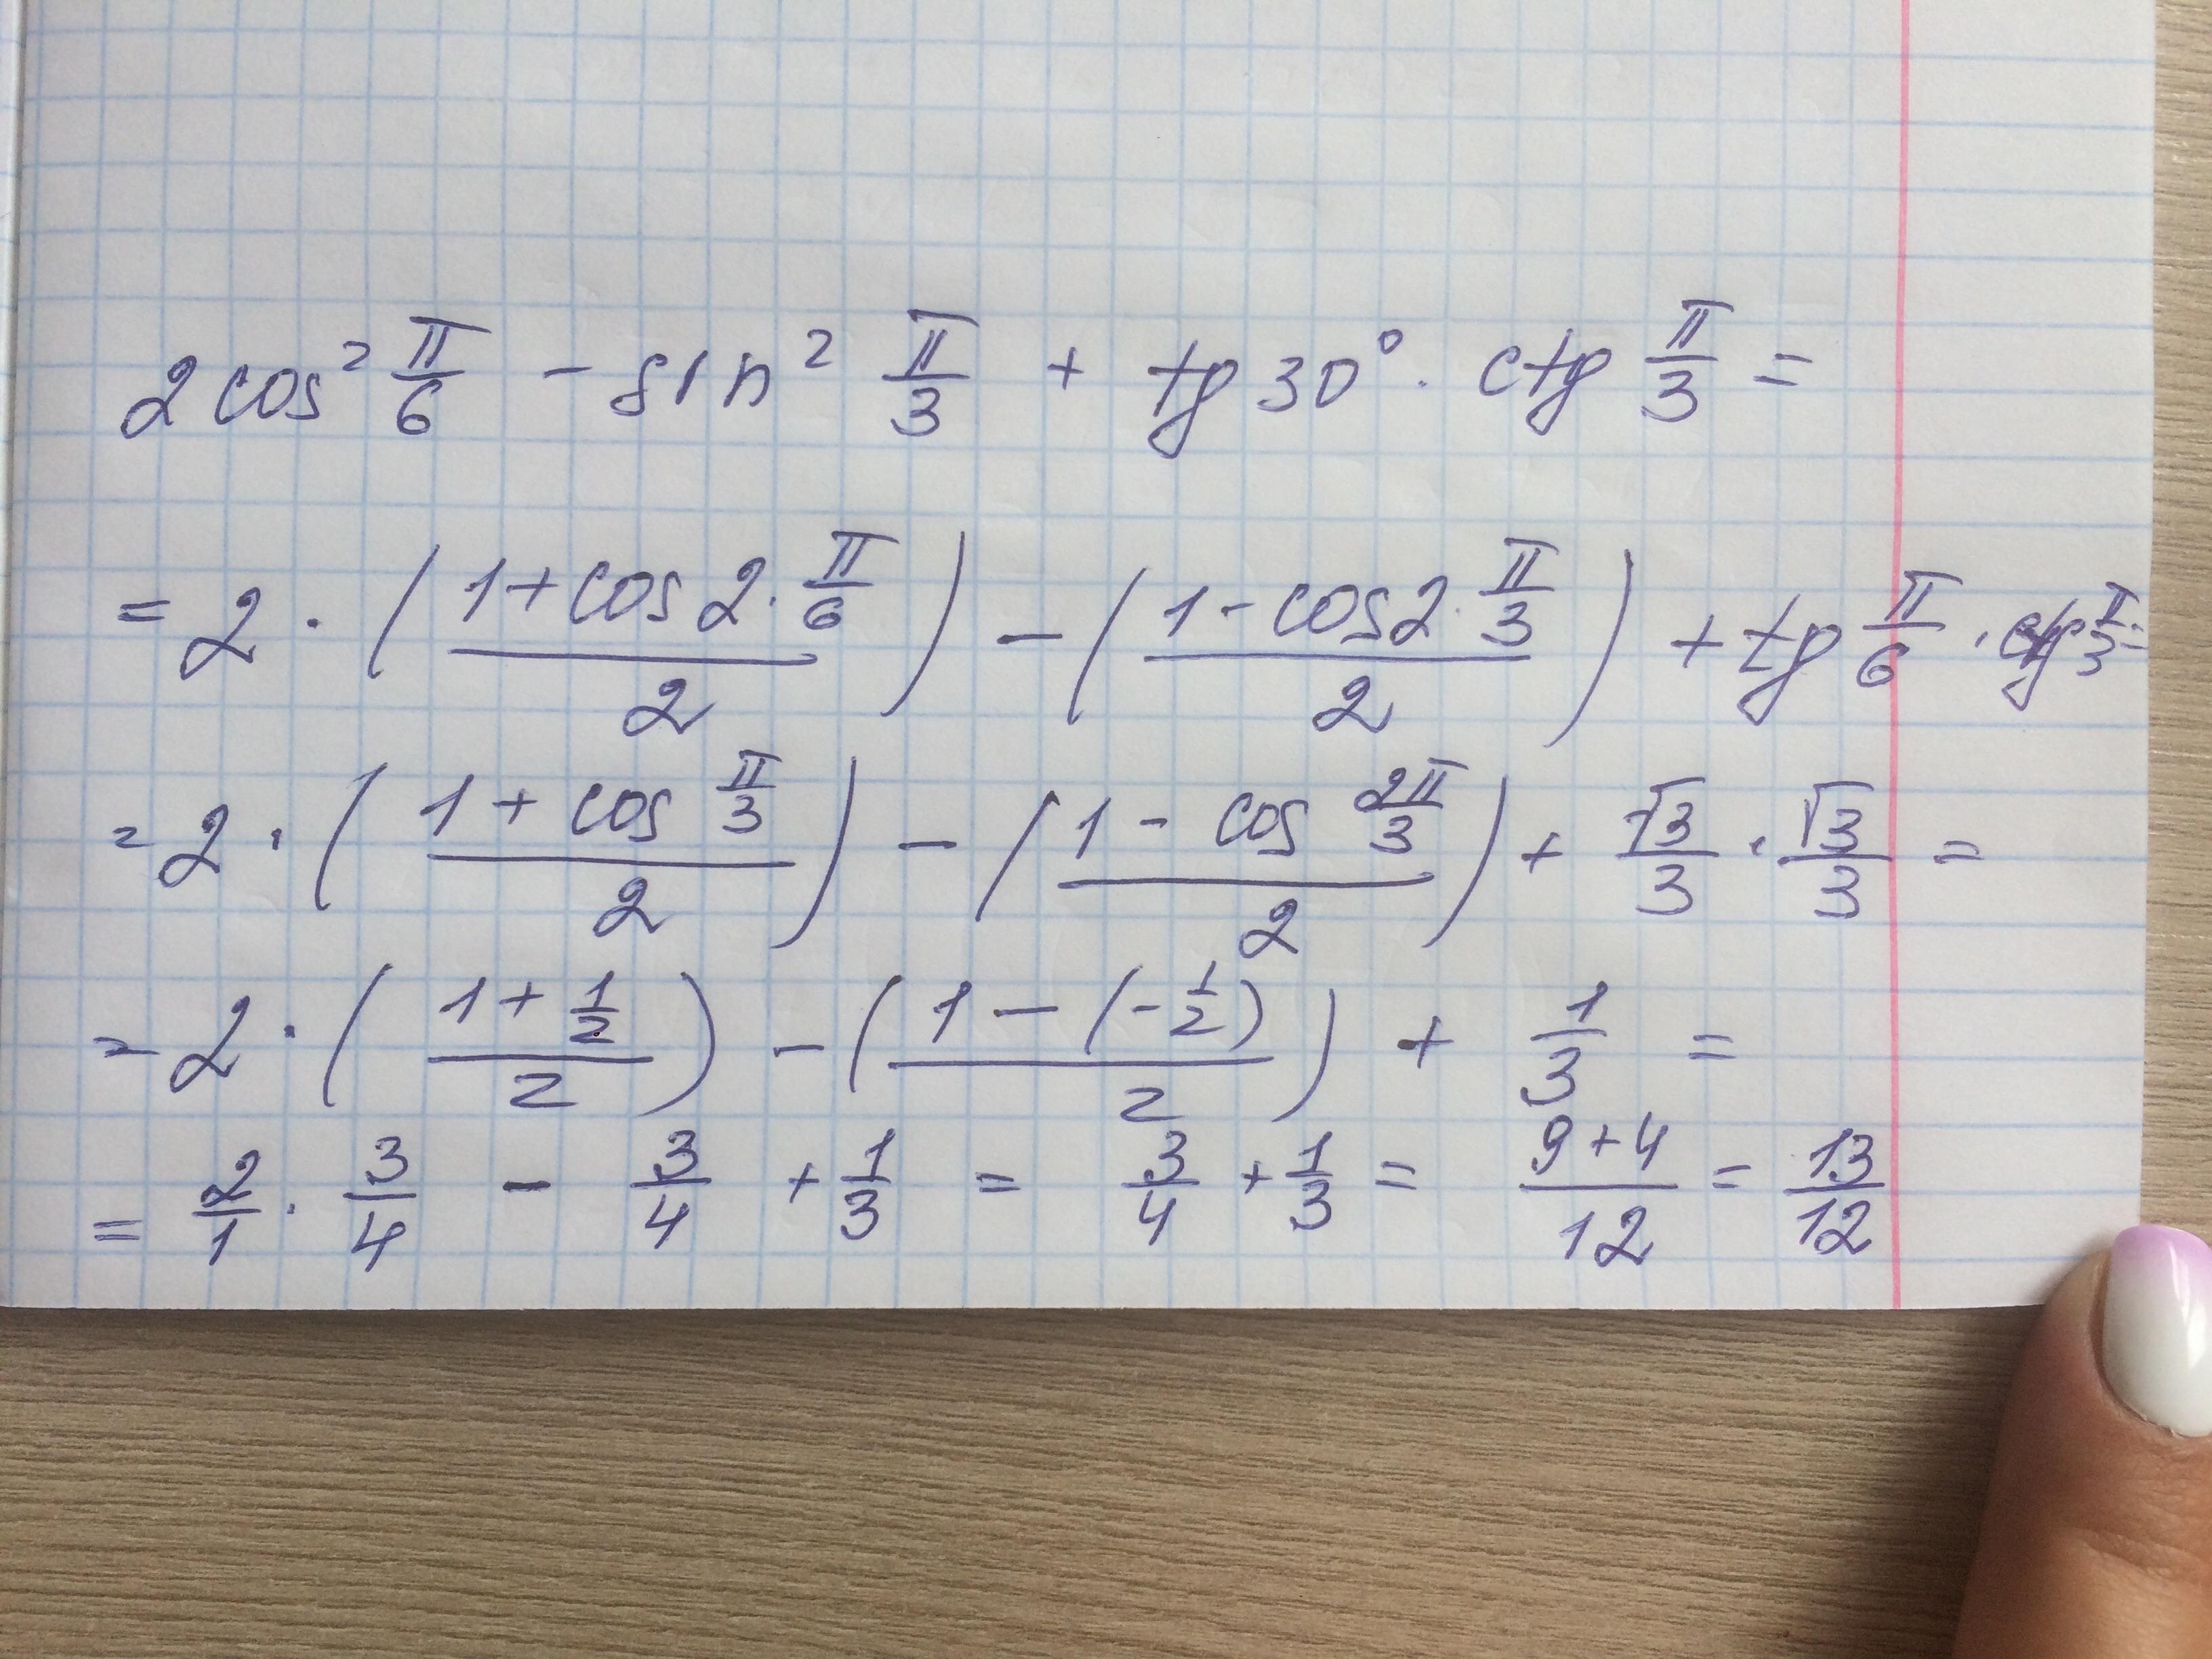 2 cos² π/6 - sin² π/3 + tg 30° · ctg π/3 =
= 2 · ((1 + cos 2 · π/6)/2) - ((1 - cos 2 · π/3)/2) + tg π/6 · ctg π/3 =
= 2 · ((1 + cos π/3)/2) - ((1 - cos 2π/3)/2) + √3/3 · √3/3 =
= 2 · ((1 + 1/2)/2) - ((1 - (-1/2))/2) + 1/3 =
= 2/1 · 3/4 - 3/4 + 1/3 = 3/4 + 1/3 = (9 + 4)/12 = 13/12